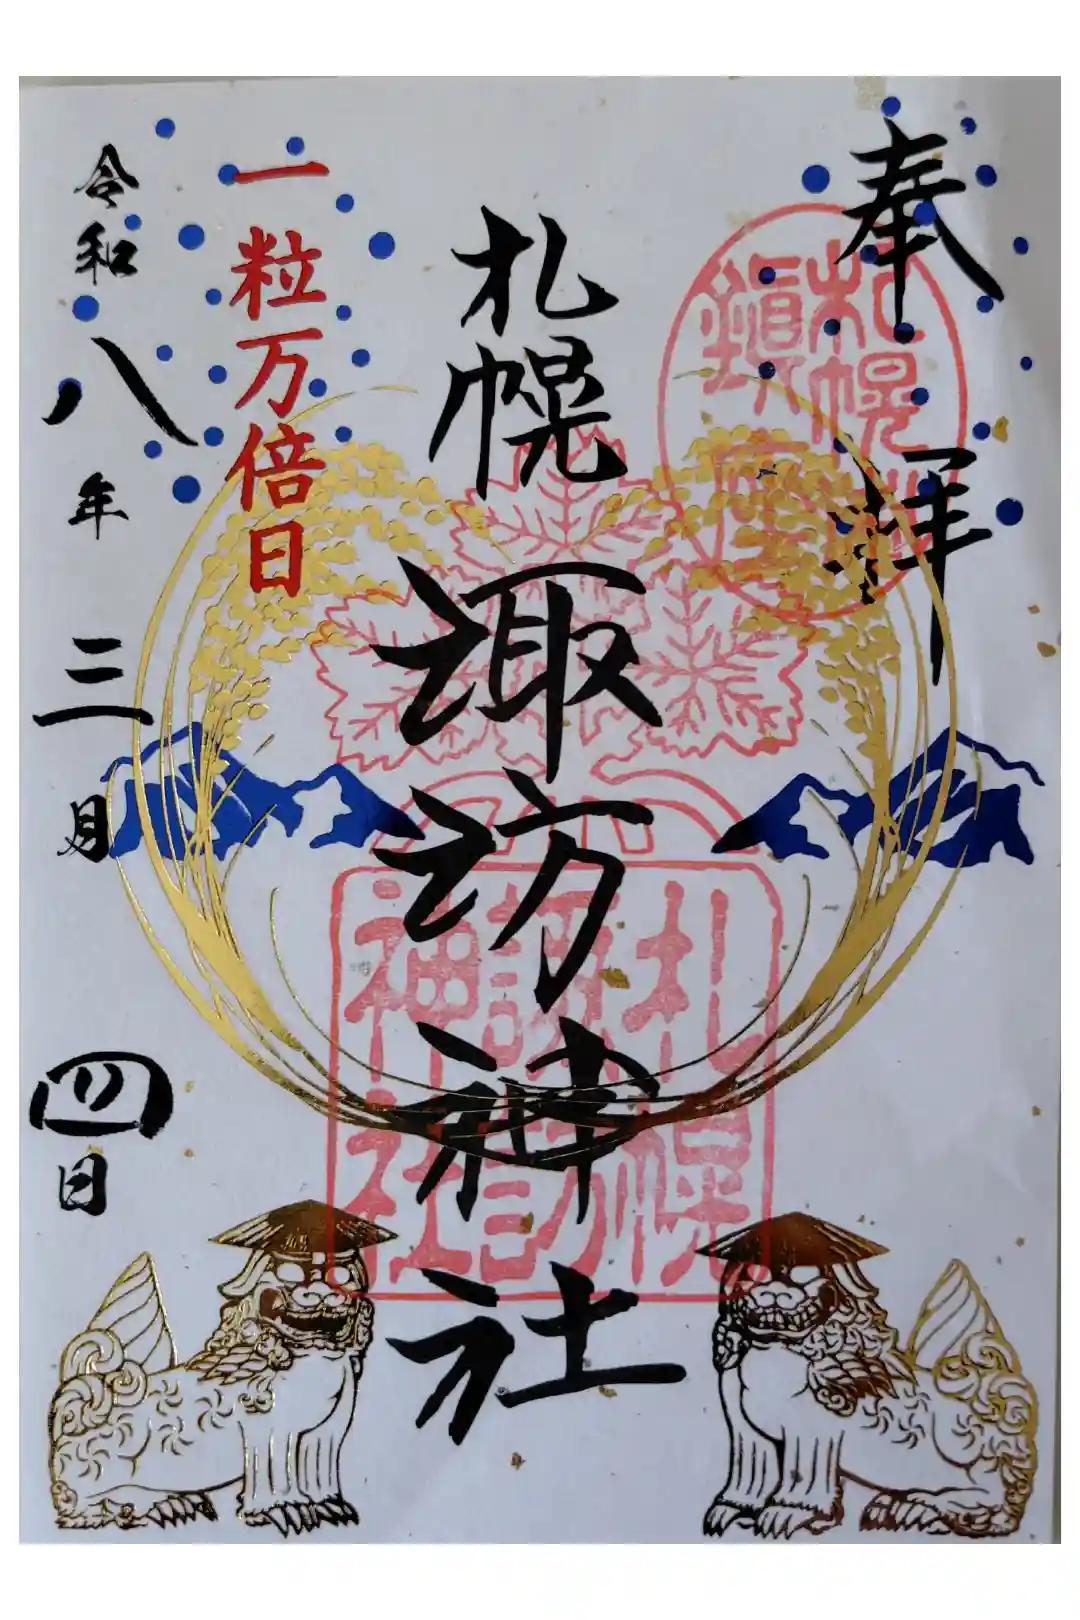 奉拝
札幌諏訪神社
一粒万倍日
令和八年三月四日
札幌
諏訪
神社